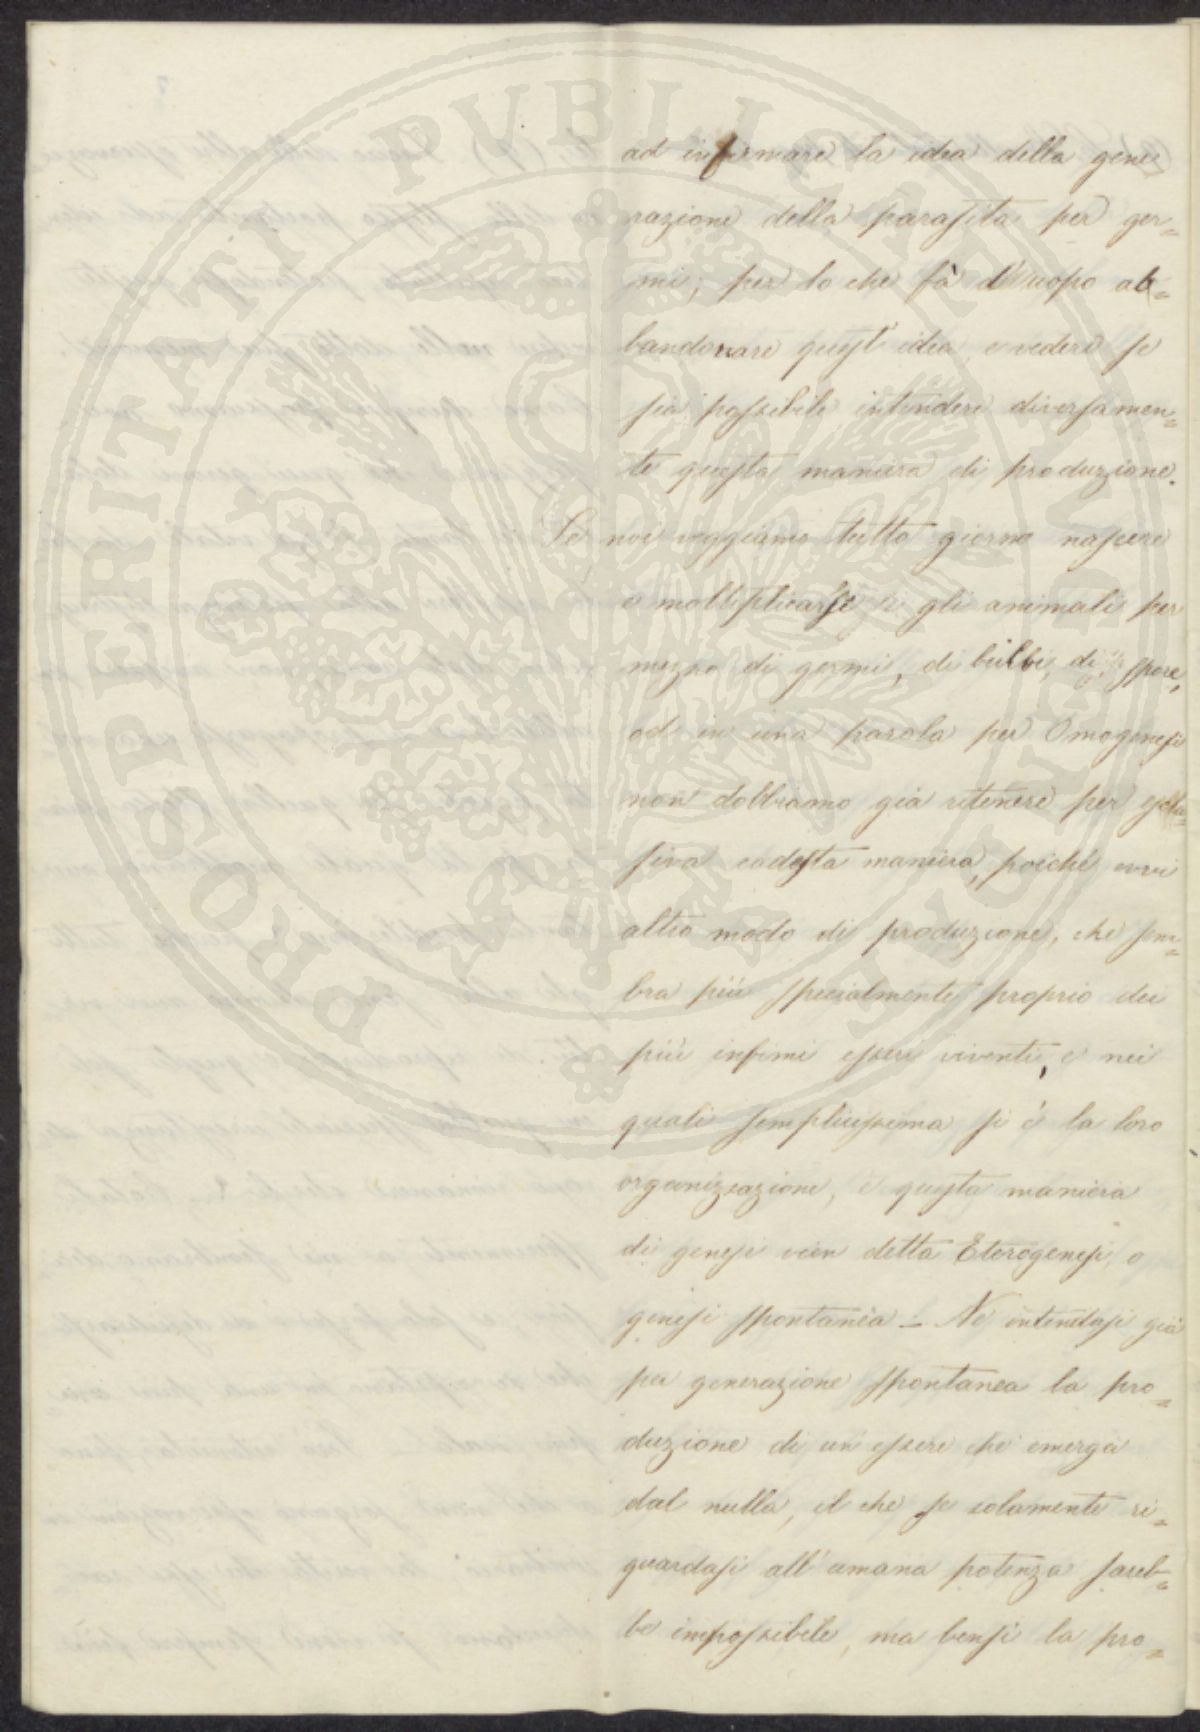 PROSPERITATI PUBLICAE AUGENDAE
ad infermare la idea della gene
razione della parasita per ger=
mi; per lo che fà d'uopo ab=
bandonare quest'idea, e vedere se
sia possibile intendere diversamen=
te questa maniera di produzione.
Se noi veggiamo tutto giorno nascere
e moltiplicarse gli animali per
mezzo di germi, di bulbi, di spore,
od in una parola per Omogenesi
non dobbiamo già ritenere per esclu=
siva codesta maniera, poiché evvi
altro modo di produzione, che sem=
bra più specialmente proprio dei
più infimi esseri viventi, e nei
quali semplicissima si è la loro
organizzazione, e questa maniera
di genesi vien detta Eterogenesi, o
genesi spontanea _ Ne intendasi già
per generazione spontanea la pro=
duzione di un essere che emerga
dal nulla, il che se solamente ri=
guardasi all'umana potenza sareb=
be impossibile, ma bensì la pro=